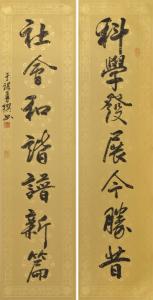 科學發展今勝昔
社會和諧譜新篇